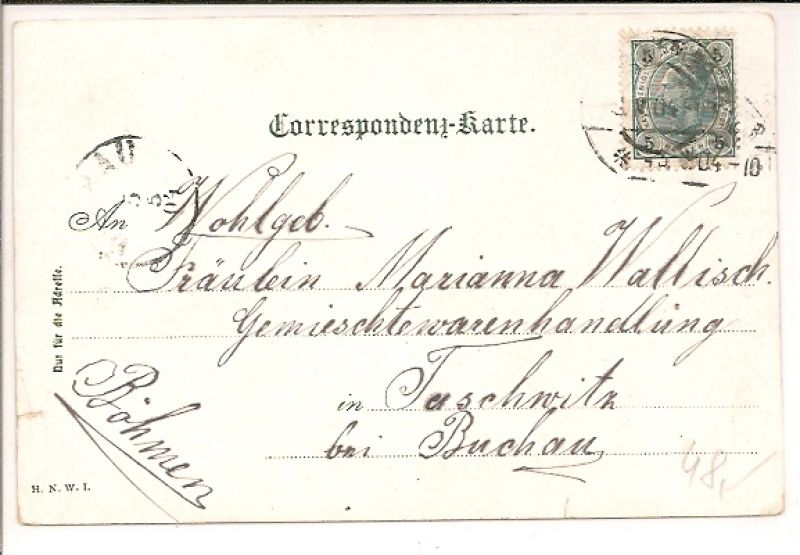 Correspondenz-Karte.
5 5
5 5
04 -10
AU
An Wohlgeb.
Fräulein Marianna Wallisch.
Gemieschtewarenhandlung
in Taschwitz
bei Buchau
Böhmen
Nur für die Adresse.
H. N. W. I.
48,-